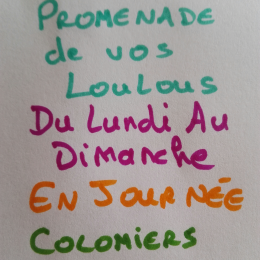 PROMENADE
de vos
LOULOUS
Du Lundi Au
Dimanche
EN JOURNÉE
COLOMIERS